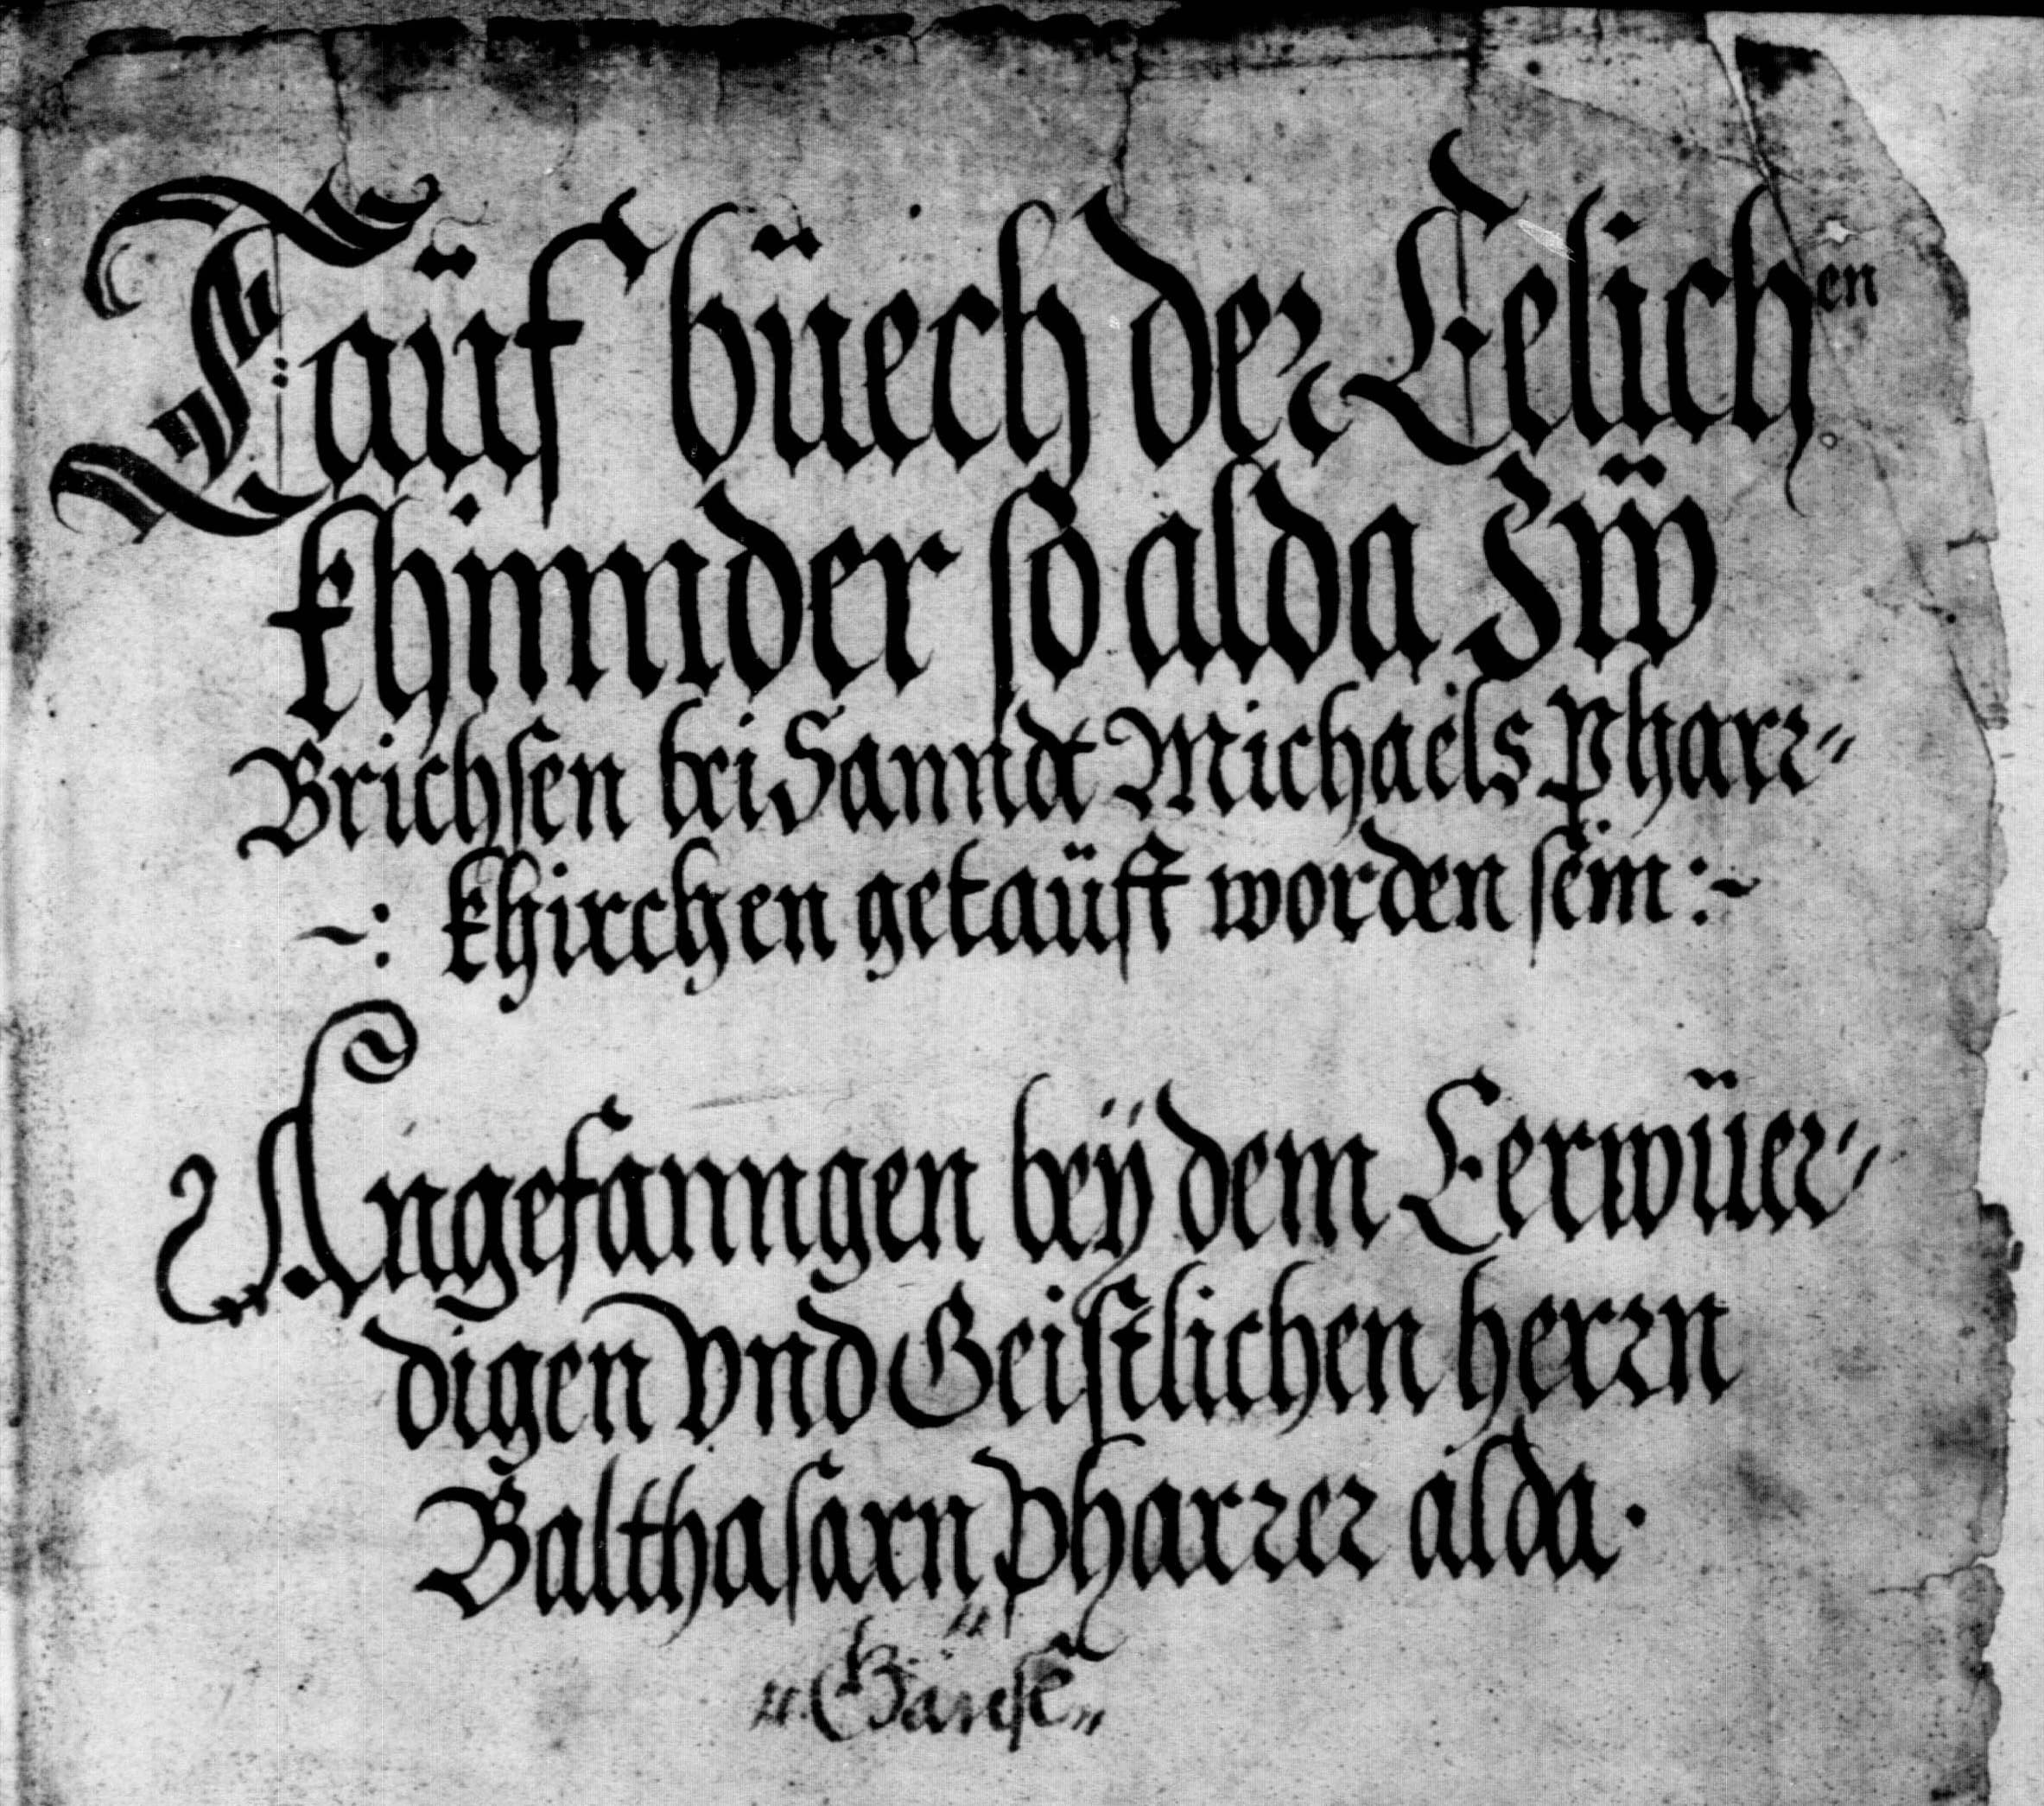 Taüf büech der Eelichen
khinnder so alda Zẅ
Brichsen bei Sanndt Michaels Pharr„
~: khirchen getaüft worden sein :~
Angefanngen beÿ dem Eerwüer„
digen Vnd Geistlichen herrn
Balthasarn Pharrer alda.